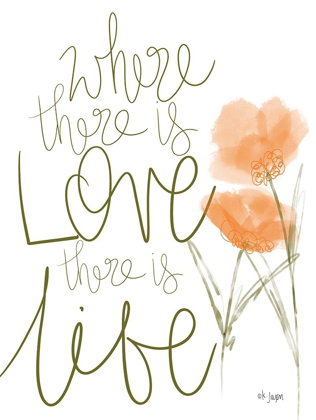 where
there is
Love
there is
life